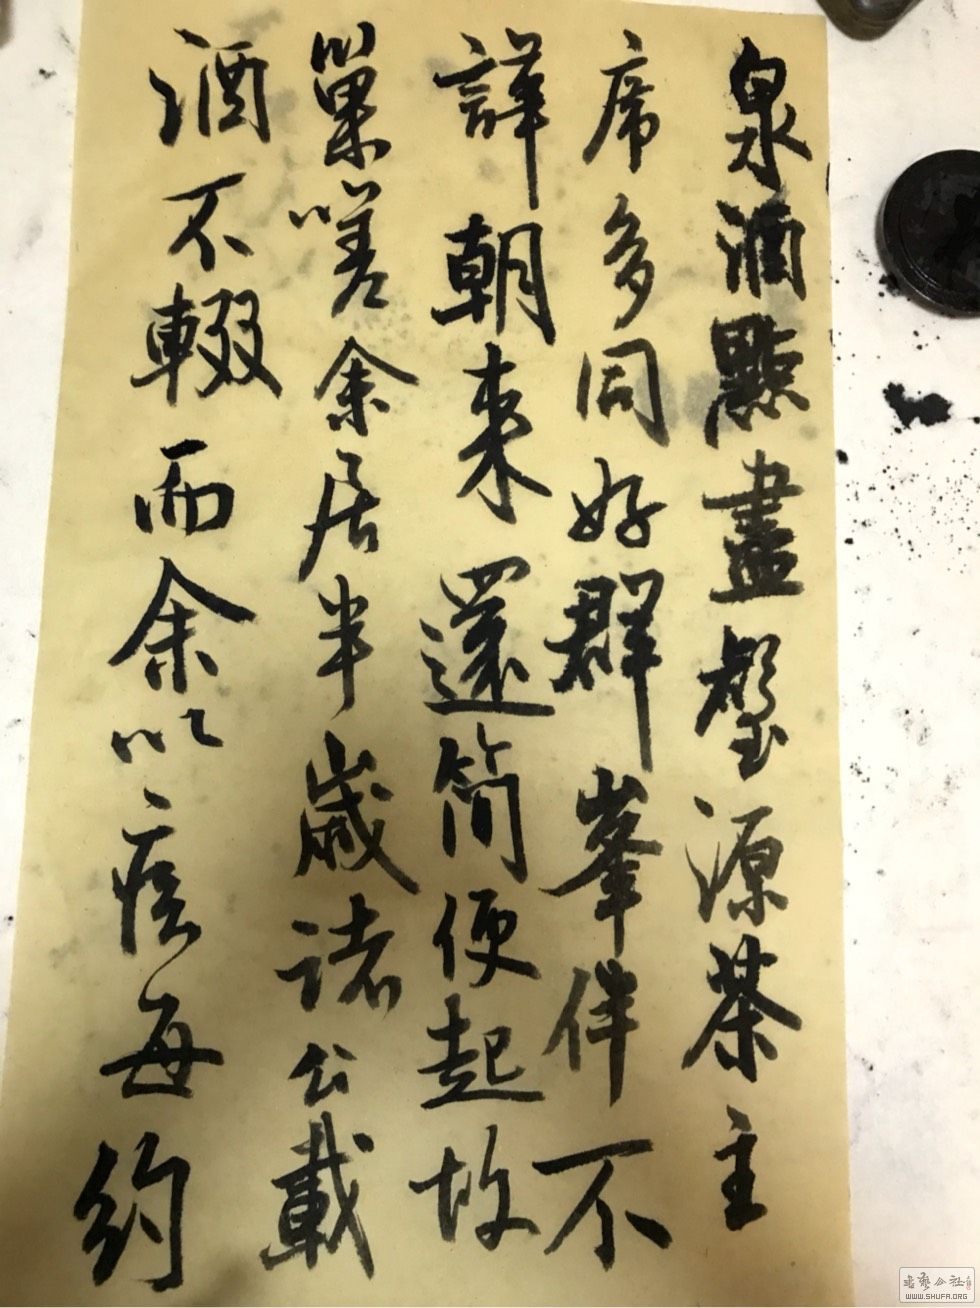 泉酒點盡壑源茶主
席多同好群峯伴不
譁朝來還簡便起故
巢嗟余居半歲諸公載
酒不輟而余以疾每約
書藝公社
WWW.SHUFA.ORG